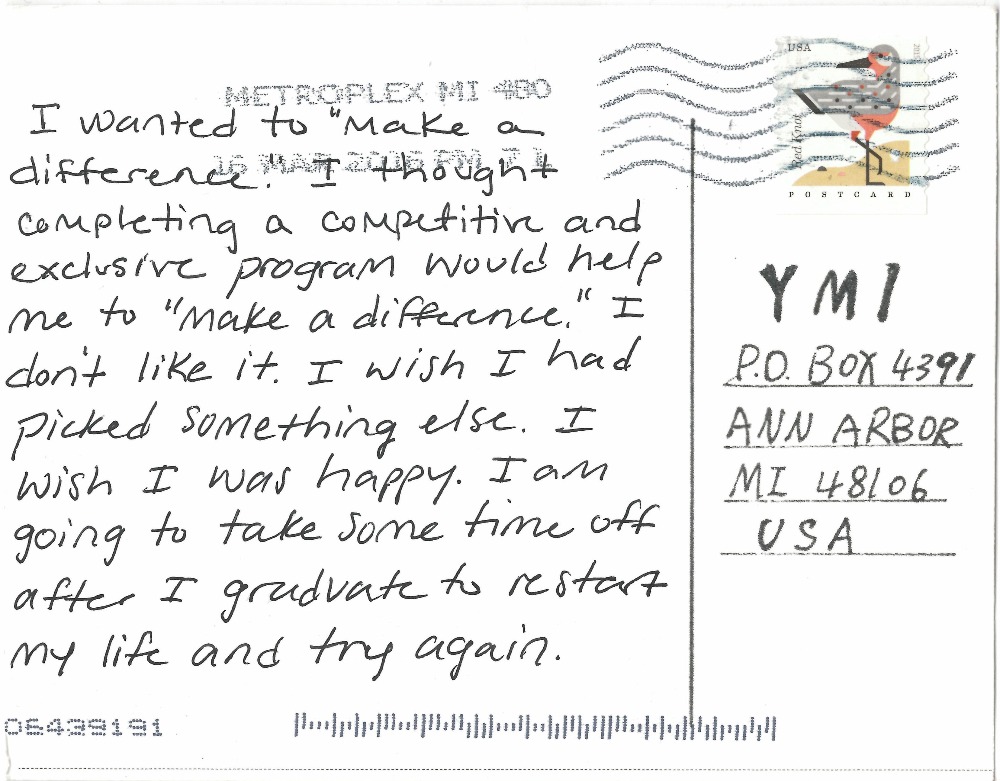 METROPLEX MI 480
16 MAR 2016 PM 2 L
I wanted to "make a
difference." I thought
completing a competitive and
exclusive program would help
me to "make a difference." I
don't like it. I wish I had
picked something else. I
wish I was happy. I am
going to take some time off
after I graduate to restart
my life and try again.
06439191
USA
Red Knot
POSTCARD
YMI
P.O. BOX 4391
ANN ARBOR
MI 48106
USA